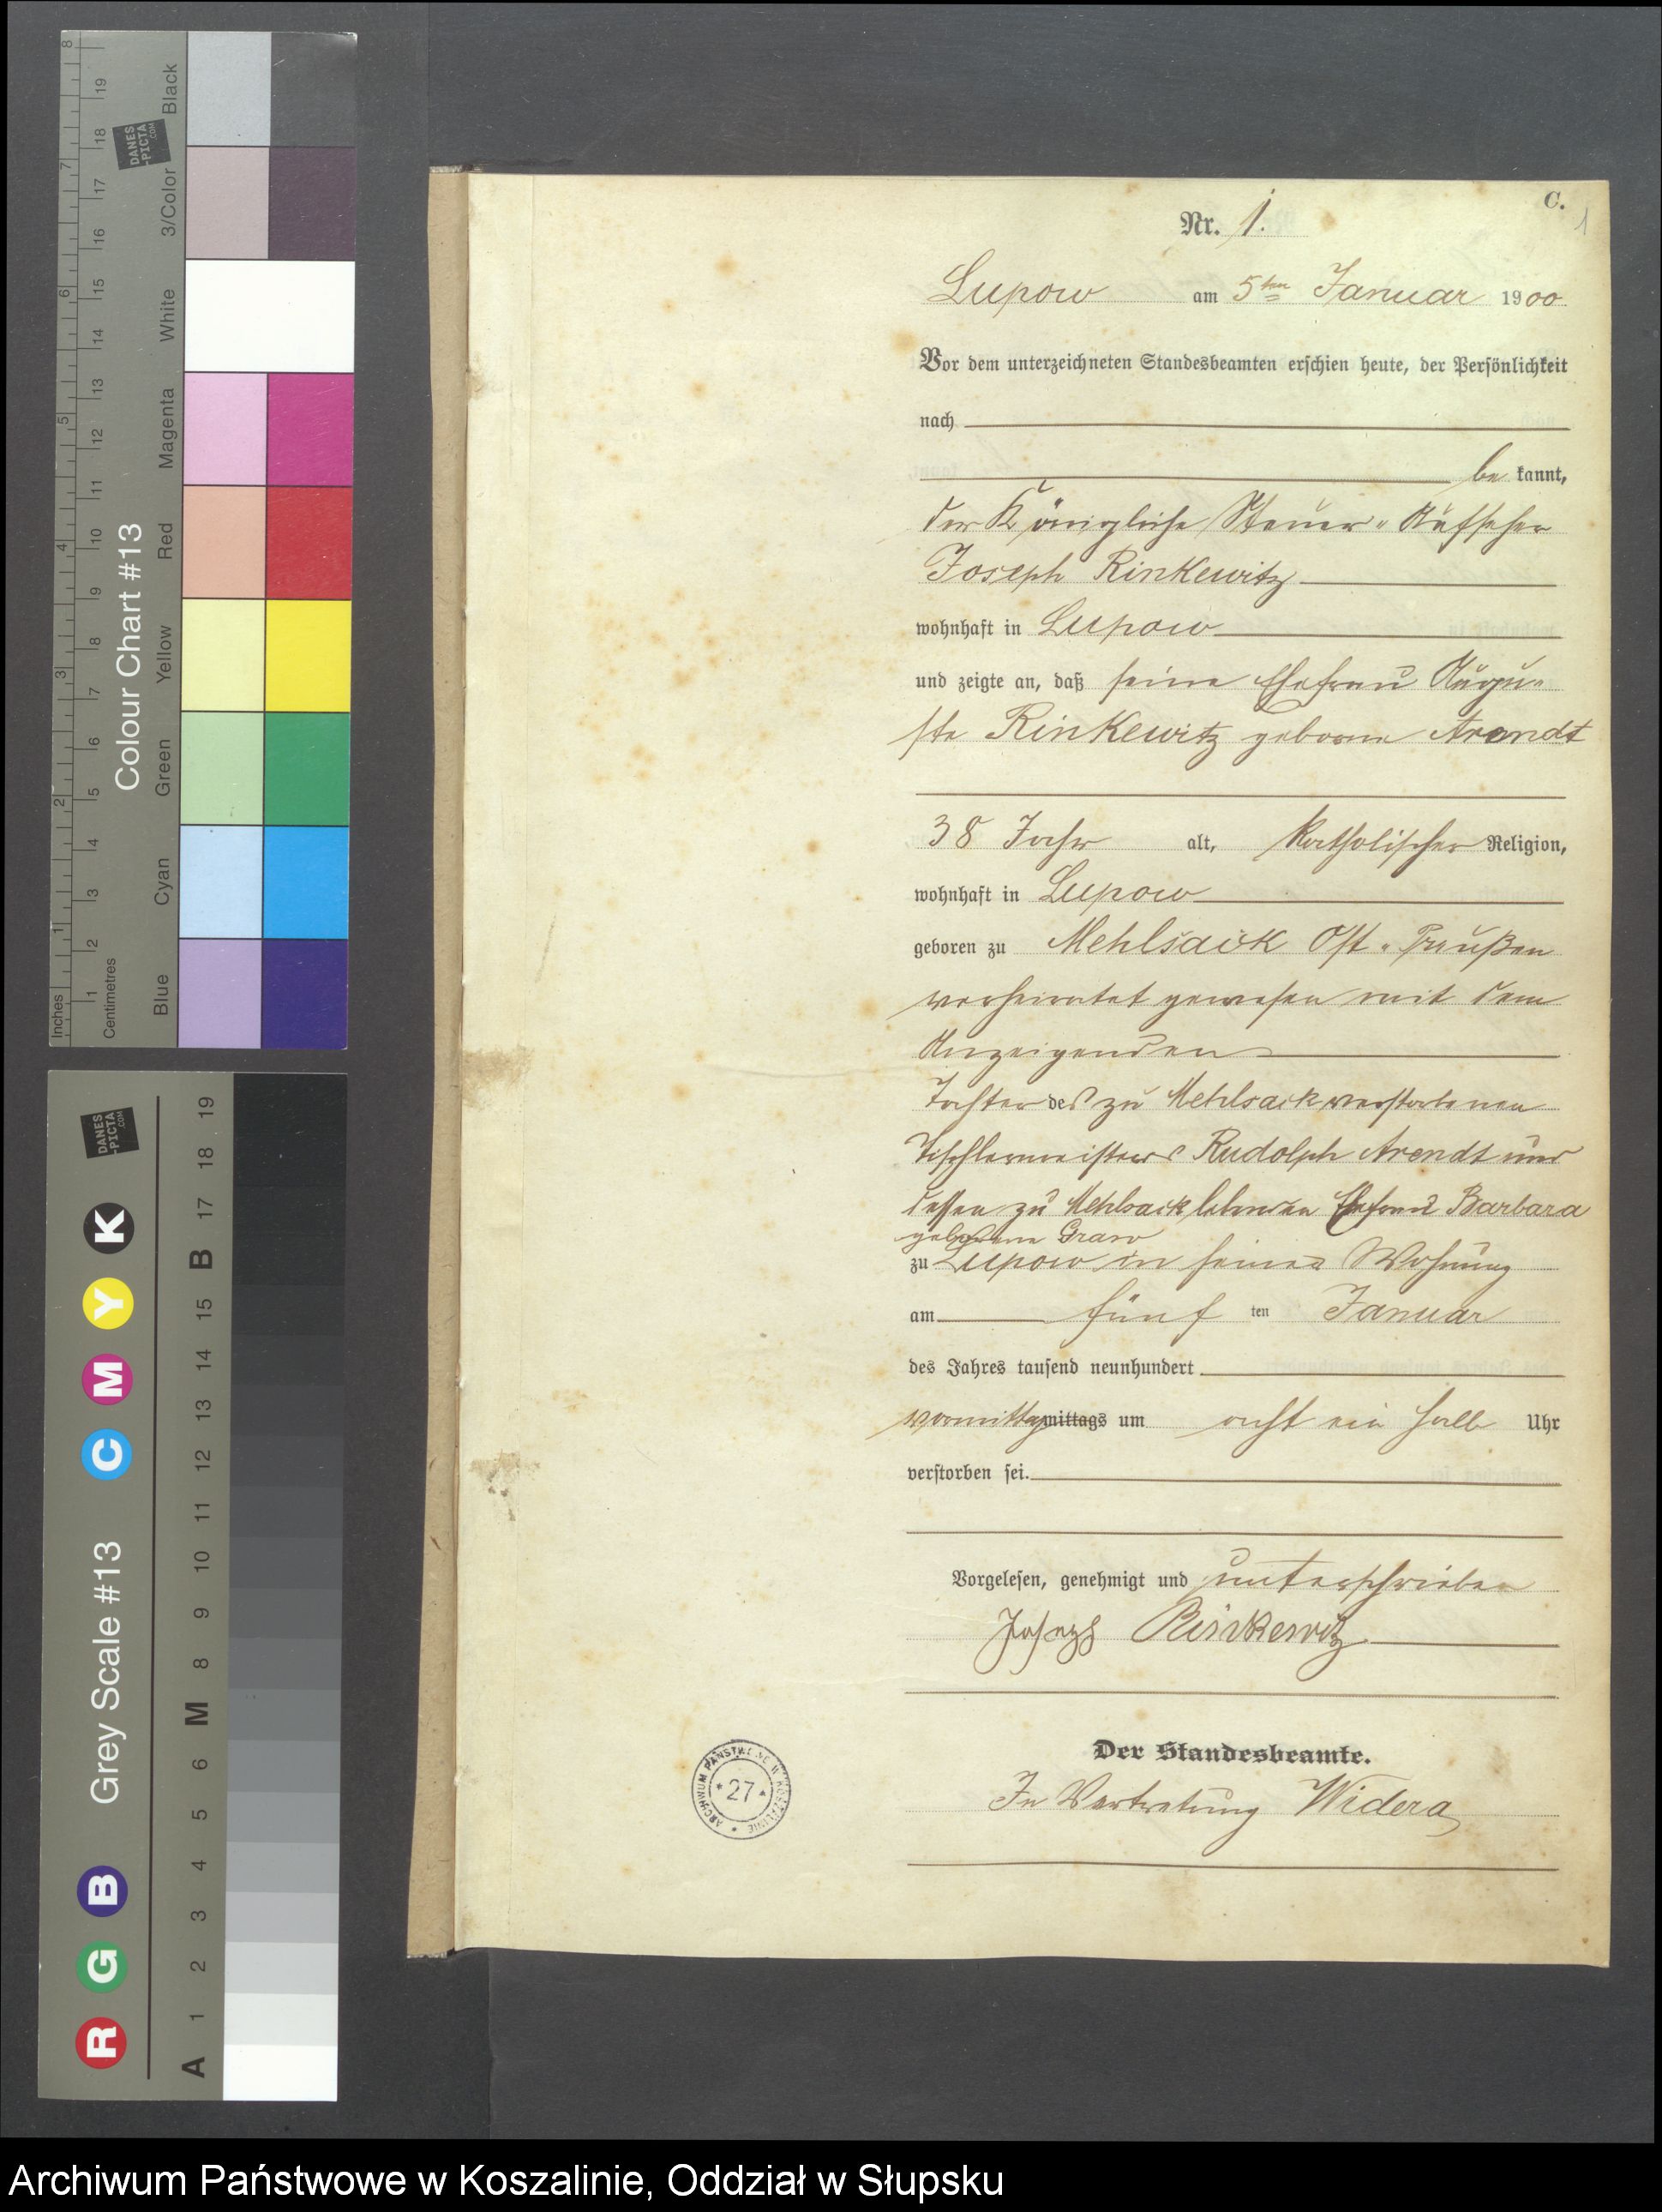 C.
1
Nr. 1.
Lupow am 5ten Januar 1900
Vor dem unterzeichneten Standesbeamten erschien heute, der Persönlichkeit
nach
be kannt,
der Königliche Steuer-Aufseher
Joseph Rinkewitz
wohnhaft in Lupow
und zeigte an, daß seine Ehefrau Augu-
ste Rinkewitz geborne Arendt
38 Jahr alt, katholischer Religion,
wohnhaft in Lupow
geboren zu Mehlsack Ost-Preußen
verheiratet gewesen mit dem
Anzeigenden
Tochter des zu Mehlsack verstorbenen
Tischlermeisters Rudolph Arendt und
dessen zu Mehlsack lebenden Ehefrau Barbara
geborene Graw
zu Lupow in seiner Wohnung
am fünf ten Januar
des Jahres tausend neunhundert
vormittags mittags um acht ein halb Uhr
verstorben sei.
Vorgelesen, genehmigt und unterschrieben
Joseph Rinkewitz
Der Standesbeamte.
In Vertretung Widera
ARCHIWUM PAŃSTWOWE W KOSZALINIE
* 27 *
Inches 1 2 3 4 5 6 7 8
Centimetres 1 2 3 4 5 6 7 8 9 10 11 12 13 14 15 16 17 18 19
Colour Chart #13
Blue Cyan Green Yellow Red Magenta White 3/Color Black
DANES
-PICTA
.COM
Grey Scale #13
R G B C M Y K
A 1 2 3 4 5 6 M 8 9 10 11 12 13 14 15 B 17 18 19
DANES
-PICTA
.COM
Archiwum Państwowe w Koszalinie, Oddział w Słupsku